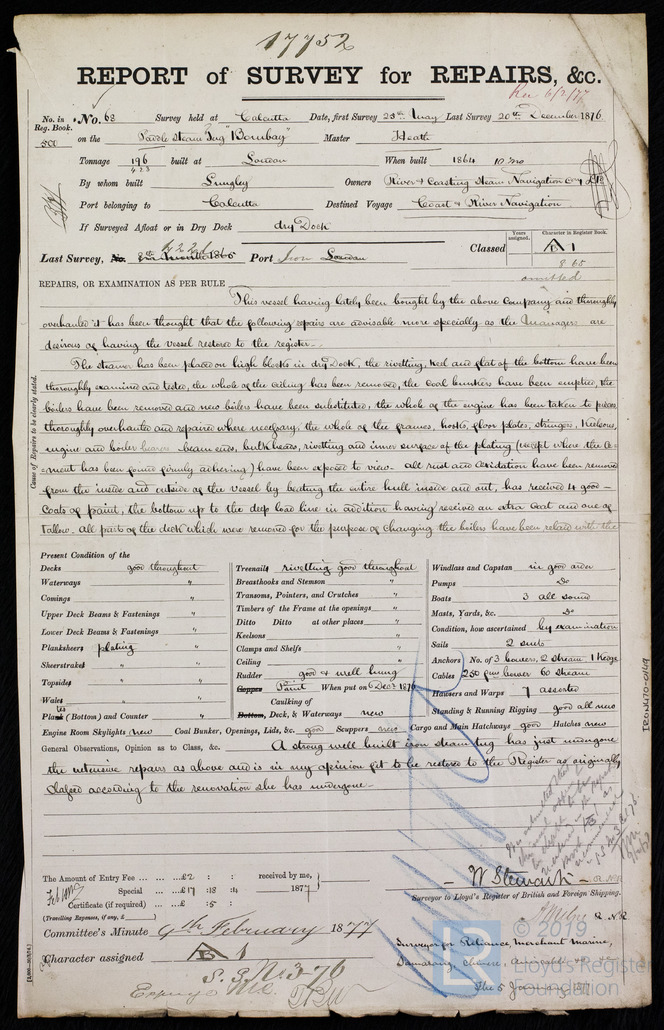 17752
REPORT of SURVEY for REPAIRS, &c.
Rec 6/2/77
No. in Reg. Book. 500
No. 63 Survey held at Calcutta Date, first Survey 25th May Last Survey 20th December 1876
on the Paddle Steam Tug "Bombay" Master Heath
Tonnage 196 built at London When built 1864 10 mo
By whom built Lungley Owners River & Coasting Steam Navigation Coy Ld
Port belonging to Calcutta Destined Voyage Coast & River Navigation
If Surveyed Afloat or in Dry Dock dry Dock
Years assigned. Character in Register Book.
Last Survey, No. Port Iron London Classed A 1
8 65
omitted
REPAIRS, OR EXAMINATION AS PER RULE
This vessel having lately been bought by the above Company and thoroughly
overhauled it has been thought that the following repairs are advisable more specially as the managers are
desirous of having the vessel restored to the register.
The steamer has been placed on high blocks in dry Dock, the rivetting, keel and flat of the bottom have been
thoroughly examined and tested, the whole of the ceiling has been removed, the coal bunkers have been emptied, the
boilers have been removed and new boilers have been substituted, the whole of the engine has been taken to pieces
thoroughly overhauled and repaired where necessary, the whole of the frames, hooks, floor plates, stringers, Kelsons,
engine and boiler bearers beam ends, bulkheads, rivetting and inner surface of the plating (except where the Ce-
-ment has been found firmly adhering) have been exposed to view. all rust and oxidation have been removed
from the inside and outside of the vessel by beating the entire hull inside and out, has received 4 good
coats of paint, the bottom up to the deep load line in addition having received an extra coat and one of
Tallow. all parts of the deck which were removed for the purpose of changing the boilers have been relaid with the
Cause of Repairs to be clearly stated.
Present Condition of the
Decks good throughout
Waterways "
Comings "
Upper Deck Beams & Fastenings "
Lower Deck Beams & Fastenings "
Planksheers plating "
Sheerstrakes "
Topsides "
Wales "
Plates (Bottom) and Counter "
Treenails rivetting good throughout
Breasthooks and Stemson "
Transoms, Pointers, and Crutches "
Timbers of the Frame at the openings "
Ditto Ditto at other places "
Keelsons "
Clamps and Shelfs "
Ceiling "
Rudder good & well hung
Copper Paint When put on Decr 1876
Caulking of
Bottom, Deck, & Waterways new
Windlass and Capstan in good order
Pumps Do
Boats 3 all sound
Masts, Yards, &c. Do
Condition, how ascertained by examination
Sails 2 suits
Anchors No. of 3 bowers, 2 stream 1 Kedge
Cables 250 fms bower 60 stream
Hawsers and Warps 7 assorted
Standing & Running Rigging good all new
Engine Room Skylights new Coal Bunker, Openings, Lids, &c. good Scuppers new Cargo and Main Hatchways good Hatches new
General Observations, Opinion as to Class, &c. A strong well built iron steam tug has just undergone
the extensive repairs as above and is in my opinion fit to be restored to the Register as originally
classed according to the renovation she has undergone
The Amount of Entry Fee £2 : : received by me,
Special £17 : 18 : 4 1877
Certificate (if required) £ : 5 :
(Travelling Expenses, if any, £ )
W Stewart
Surveyor to Lloyd's Register of British and Foreign Shipping.
Committee's Minute 9th February 1877
Character assigned A 1
S. S. No. 3-76
Surveyor for Reliance Merchant Marine,
The 5 January 1877
IRON470-0149
© 2019
LR
Lloyd's Register
Foundation